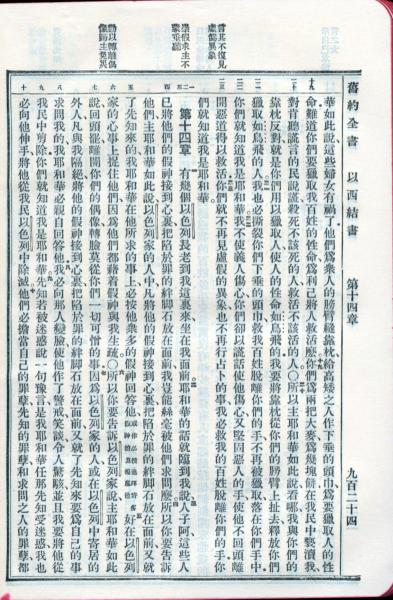 舊約全書　以西結書　第十四章　九百二十四
言其不復見
虛僞異象
崇假求主不
蒙垂聽
勸以轉離偶
像歸主免災
華如此說這些婦女有禍了他們爲衆人的膀臂縫靠枕給高矮之人作下垂的頭巾爲要獵取人的性
十九 命難道你們要獵取我百姓的性命爲利己將人救活麼你們爲兩把大麥爲幾塊餅在我民中褻瀆我
對肯聽謊言的民說謊殺死不該死的人救活不該活的人○所以主耶和華如此說看哪我與你們的
靠枕反對就是你們用以獵取人使人的性命如鳥飛的我要將靠枕從你們的膀臂上扯去釋放你們
獵取如鳥飛的人我也必撕裂你們下垂的頭巾救我百姓脫離你們的手不再被獵取落在你們手中
你們就知道我是耶和華我不使義人傷心你們卻以謊話使他傷心又堅固惡人的手使他不回頭離
開惡道得以救活你們就不再見虛假的異象也不再行占卜的事我必救我的百姓脫離你們的手你
們就知道我是耶和華
第十四章　有幾個以色列長老到我這裏來坐在我面前耶和華的話就臨到我說人子阿這些人
四 已將他們的假神接到心裏把陷於罪的絆腳石放在面前我豈能絲毫被他們求問麼所以你要告訴
他們主耶和華如此說以色列家的人中凡將他的假神接到心裏把陷於罪的絆腳石放在面前又就
五 了先知來的我耶和華在他所求的事上必按他衆多的假神回答他好在以色列
六 家的心事上捉住他們因爲他們都藉着假神與我生疏○所以你要告訴以色列家說主耶和華如此
七 說回頭罷離開你們的偶像轉臉莫從你們一切可憎的事因爲以色列家的人或在以色列中寄居的
外人凡與我隔絕將他的假神接到心裏把陷於罪的絆腳石放在面前又就了先知來要爲自己的事
八 求問我的我耶和華必親自回答他我必向那人變臉使他作了警戒笑談令人驚駭並且我要將他從
九 我民中剪除你們就知道我是耶和華先知若被迷惑說一句豫言是我耶和華任那先知受迷惑我也
十 必向他伸手將他從我民以色列中除滅他們必擔當自己的罪孽先知的罪孽和求問之人的罪孽都